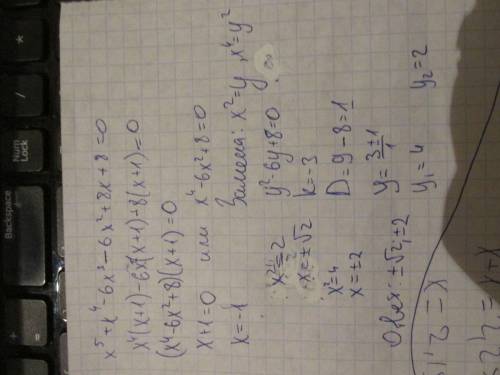 x⁵+x⁴-6x³-6x²+8x+8=0
x⁴(x+1)-6x²(x+1)+8(x+1)=0
(x⁴-6x²+8)(x+1)=0
x+1=0 или x⁴-6x²+8=0
x=-1 Замена: x²=y, x⁴=y²
y²-6y+8=0
k=-3
D=9-8=1
y=3±1/1
y₁=4 y₂=2
x²=2
x=±√2
x²=4
x=±2
Ответ: ±√2, ±2
Backspace
Num
Lock
*